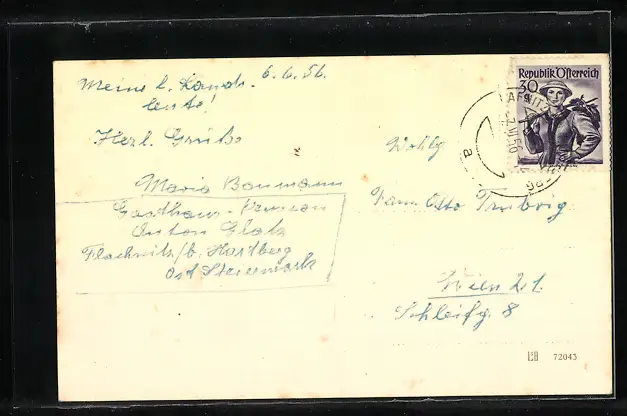 6.6.56.
Meine l. Lands-
leute!
Herzl. Grüße
Maria Baumann
Gasthaus-Pension
Anton Glatz
b. Hartberg
Ost Steiermark
Republik Österreich
30
LAFNITZ
a
Wohlg
Fam. Otto
Wien 21.
Schleifg. 8
72043